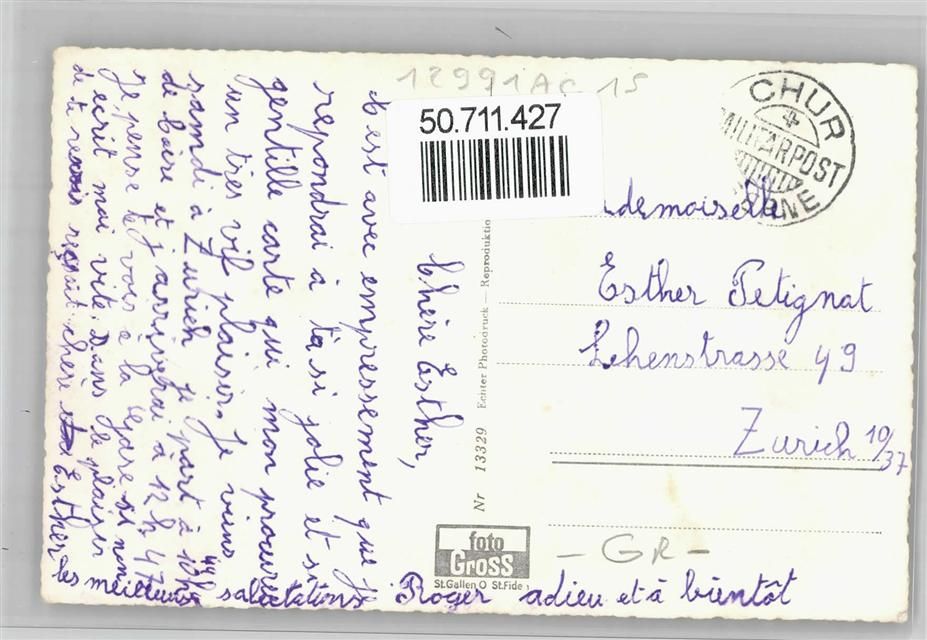 12991AC 15
50.711.427
CHUR
MILITÄRPOST
Esther Petignat
Lehenstrasse 49
Zurich 10/37
Chère Esther,
C'est avec empressement que je
repondrai à ta si jolie et si
gentille carte qui mon procuré
un très vif plaisir. Je viens
samdi à Zurich je part à 10h
de Coire et j'arriverai à 12h 47
Je pense te vois à la Gare si non
ecrit moi vite. Dans le plaisir
de te chère Esther
les meilleures salutations Roger adieu et à bientôt
Nr 13329 Echter Photodruck — Reproduktio
foto
Gross
St.Gallen O St.Fide
- GR -